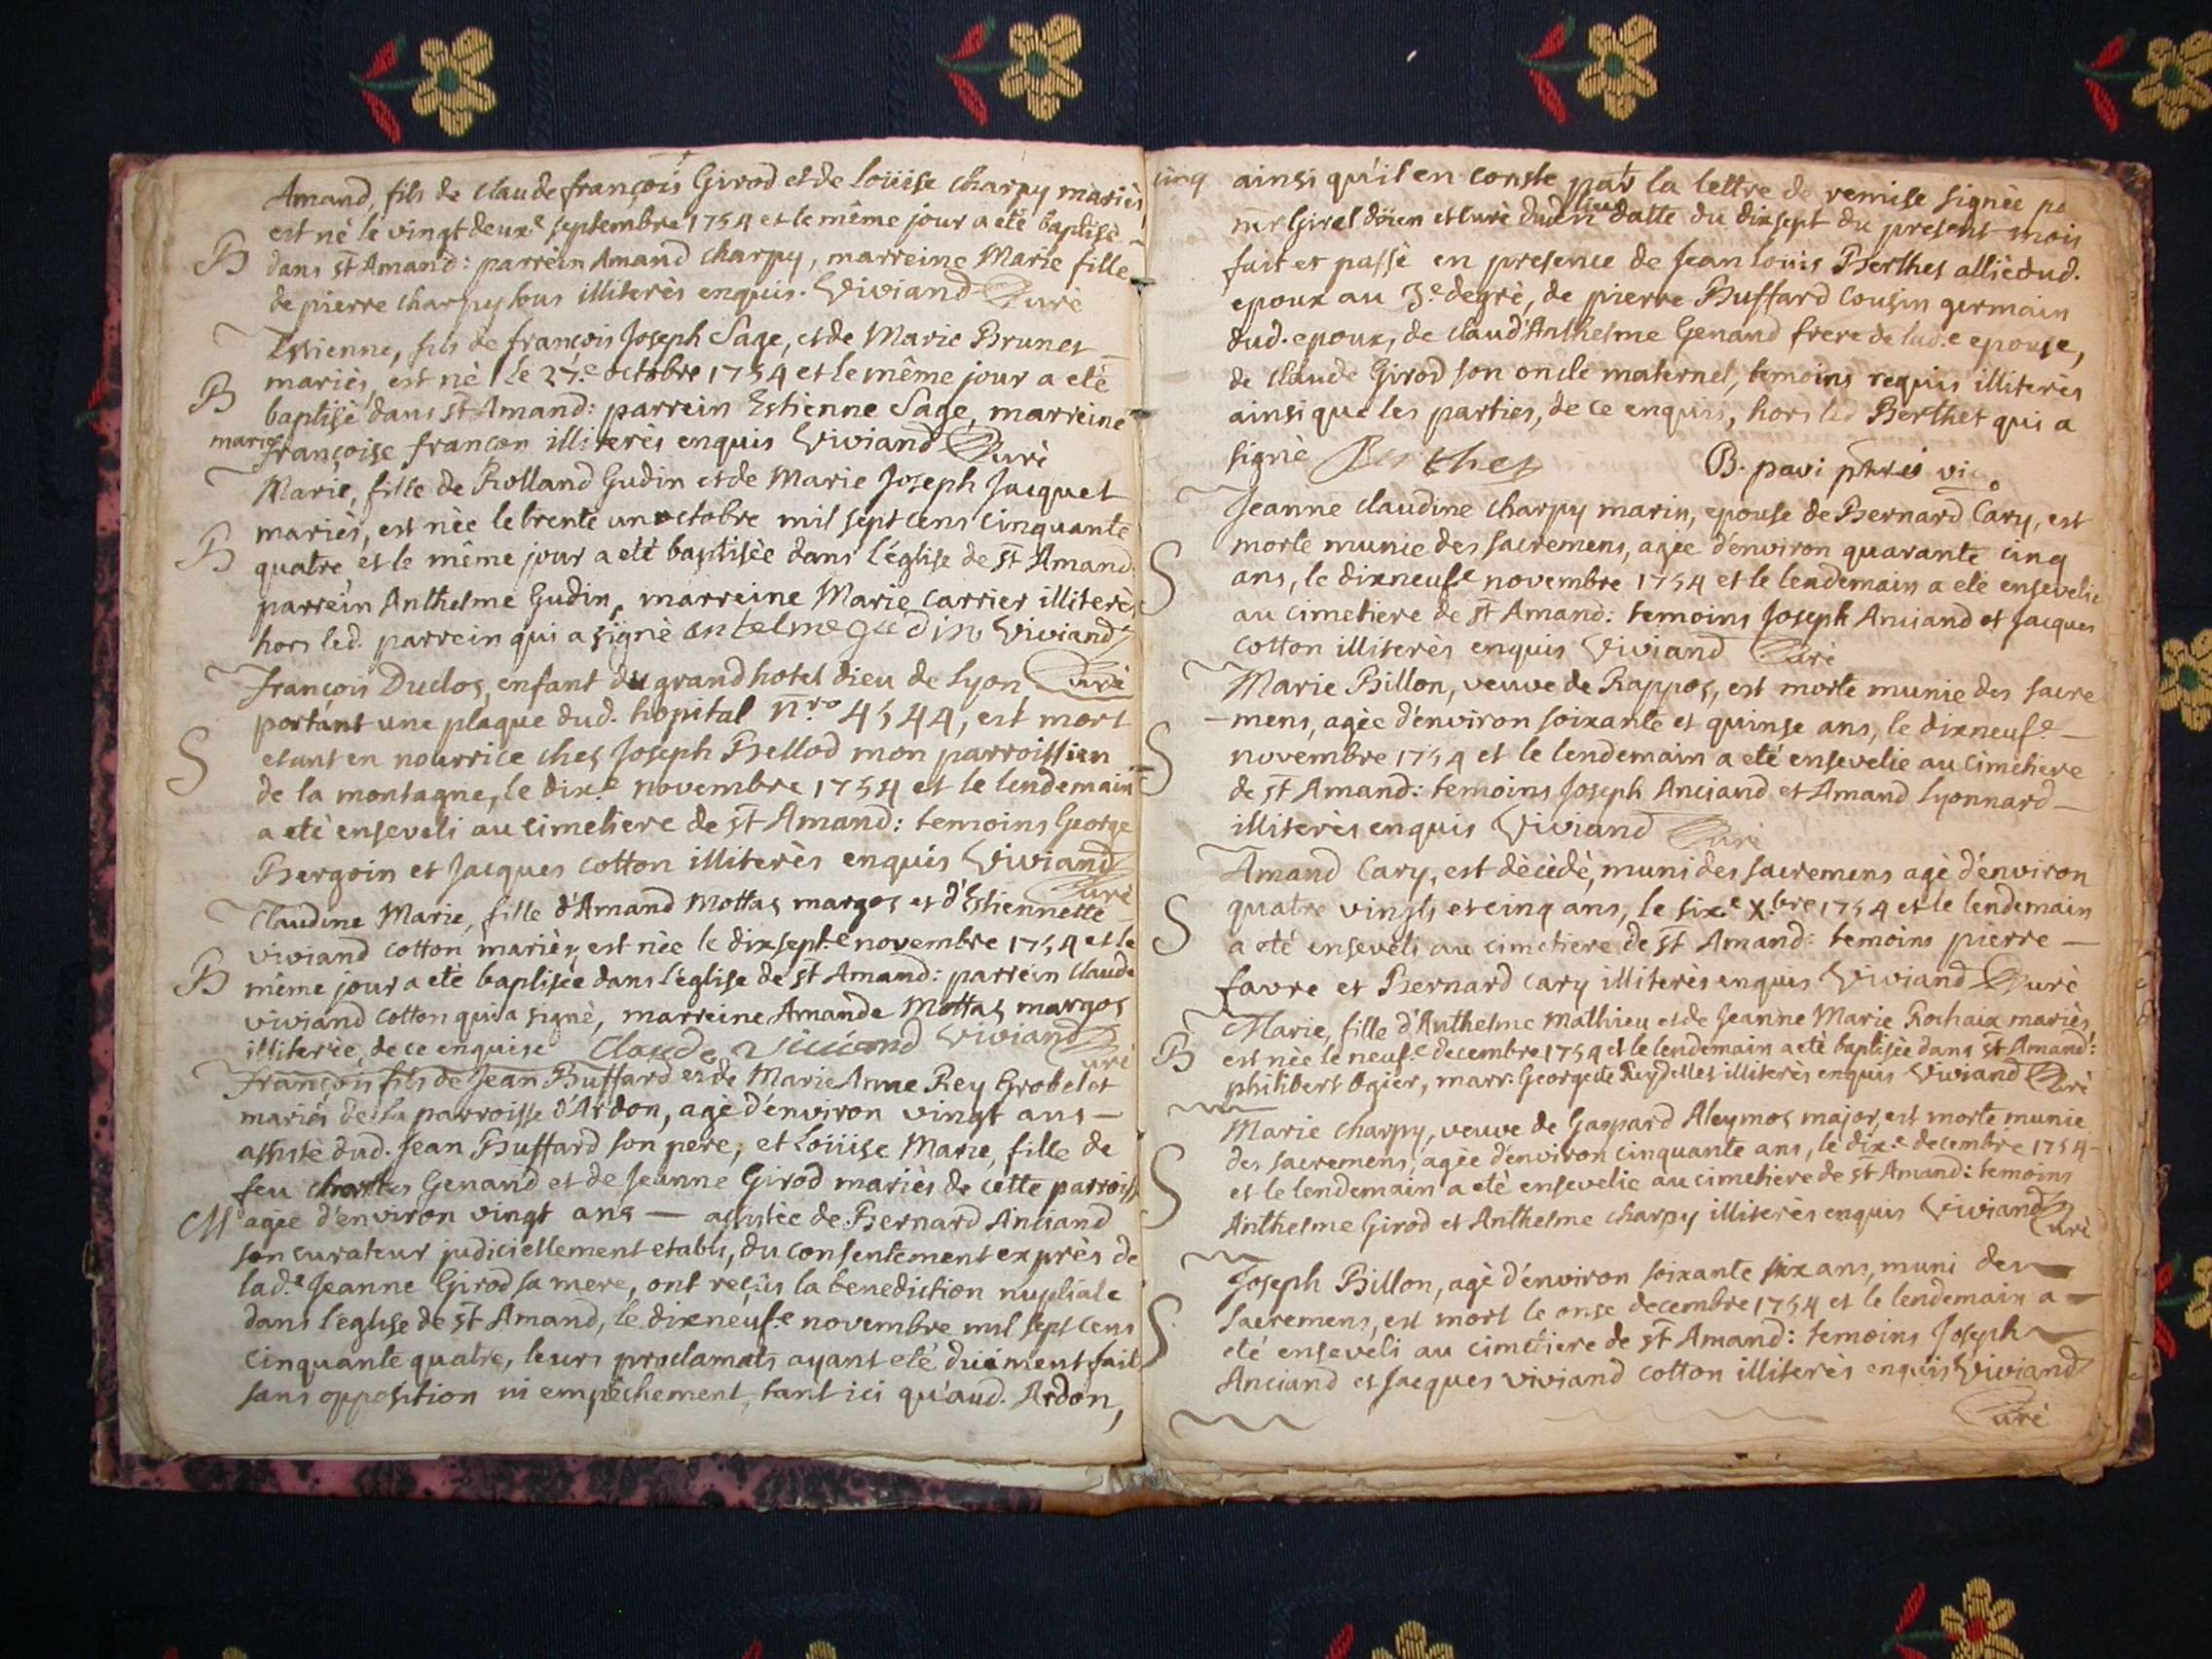 Amand, fils de claude françois Girod et de loüise charpy mariès
est nè le vingt deuxe septembre 1754 et le même jour a etè baptisè
B dans st Amand: parrein Amand charpy, marreine Marie fille
de pierre charpy tous illiterès enquis. Viviand Curè
Estienne, fils de françois Joseph Sage, et de Marie Brunet
mariès, est nè le 27.e octobre 1754 et le même jour a etè
B baptisè dans st Amand: parrein Estienne Sage, marreine
marie françoise francon illiterès enquis Viviand Curè
Marie, fille de Rolland Gudin et de Marie Joseph Jacquet
mariès, est nèe le trente un octobre mil sept cens cinquante
B quatre et le même jour a etè baptisèe dans l'église de st Amand.
parrein Anthelme Gudin, marreine Marie carrier illiterès
hors led. parrein qui a signè antelme gudin Viviand
Curè
françois Duclos, enfant du grand hotel dieu de Lyon
portant une plaque dud. hopital nro 4544, est mort
S etant en nourrice ches Joseph Bellod mon parroissien
de la montagne, le dix.e novembre 1754 et le lendemain
a etè enseveli au cimetiere de st Amand: temoins George
Bergoin et Jacques cotton illiterès enquis Viviand
Curè
Claudine Marie, fille d'Amand Mottas margos et d'Estiennette
viviand cotton mariès, est nèe le dixsept.e novembre 1754 et le
B même jour a etè baptisèe dans l'église de st Amand: parrein claude
viviand cotton qui a signè, marreine Amande Mottas margos
illiterèe, de ce enquise Claude Viviand Viviand
Curè
françois fils de Jean Buffard et de Marie Anne Rey Grobelet
mariès de la parroisse d'Ardon, agè d'environ vingt ans —
assistè dud. Jean Buffard son pere, et Loüise Marie, fille de
feu charles Genand et de Jeanne Girod mariès de cette parroisse
M agèe d'environ vingt ans — assistèe de Bernard Anciand
son curateur judiciellement etabli, du consentement exprès de
lad.e Jeanne Girod sa mere, ont reçûs la benediction nuptiale
dans l'église de st Amand, le dixneuf.e novembre mil sept cens
cinquante quatre, leurs proclamats ayant etè duëment fait
sans opposition ni empêchement, tant ici qu'aud. Ardon,
cinq ainsi qu'il en conste par la lettre de remise signèe
mr Girel döien et curè dud lieu datte du dixsept du present mois
fait et passè en presence de Jean louis Berthet allié dud.
epoux au 3e degrè, de pierre Buffard cousin germain
dud. epoux, de claud'Anthelme Genand frere de lad.e epouse,
de claude Girod son oncle maternel, temoins requis illiterès
ainsi que les parties, de ce enquis, hors led Berthet qui a
signè Berthet B. pavi ptre vic
Jeanne claudine charpy marin, epouse de Bernard Cary, est
morte munie des sacremens, agèe d'environ quarante cinq
S ans, le dixneuf.e novembre 1754 et le lendemain a etè ensevelie
au cimetiere de st Amand: temoins Joseph Anciand et Jacques
cotton illiterès enquis Viviand Curè
Marie Billon, veuve de Rappos, est morte munie des sacre
-mens, agèe d'environ soixante et quinse ans, le dixneuf.e —
S novembre 1754 et le lendemain a etè ensevelie au cimetiere
de st Amand: temoins Joseph Anciand et Amand Lyonnard —
illiterès enquis Viviand Curè
Amand Cary, est dècèdè, muni des sacremens agè d'environ
quatre vingts et cinq ans, le six.e Xbre 1754 et le lendemain
S a etè enseveli au cimetiere de st Amand: temoins pierre —
favre et Bernard Cary illiterès enquis Viviand Curè
Marie, fille d'Anthelme Mathieu et de Jeanne Marie Rochaix mariès,
B est nèe le neuf.e decembre 1754 et le lendemain a etè baptisèe dans st Amand:
philibert Ogier, marr. Georgette Reydellet illiterès enquis Viviand Curè
Marie charpy, veuve de Gaspard Aleymos major, est morte munie
des sacremens, agèe d'environ cinquante ans, le dix.e decembre 1754 —
S et le lendemain a etè ensevelie au cimetiere de st Amand: temoins
Anthelme Girod et Anthelme charpy illiterès enquis Viviand
Curè
Joseph Billon, agè d'environ soixante six ans, muni des
S sacremens, est mort le onse decembre 1754 et le lendemain a
etè enseveli au cimetiere de st Amand: temoins Joseph
Anciand et Jacques viviand cotton illiterès enquis Viviand
Curè